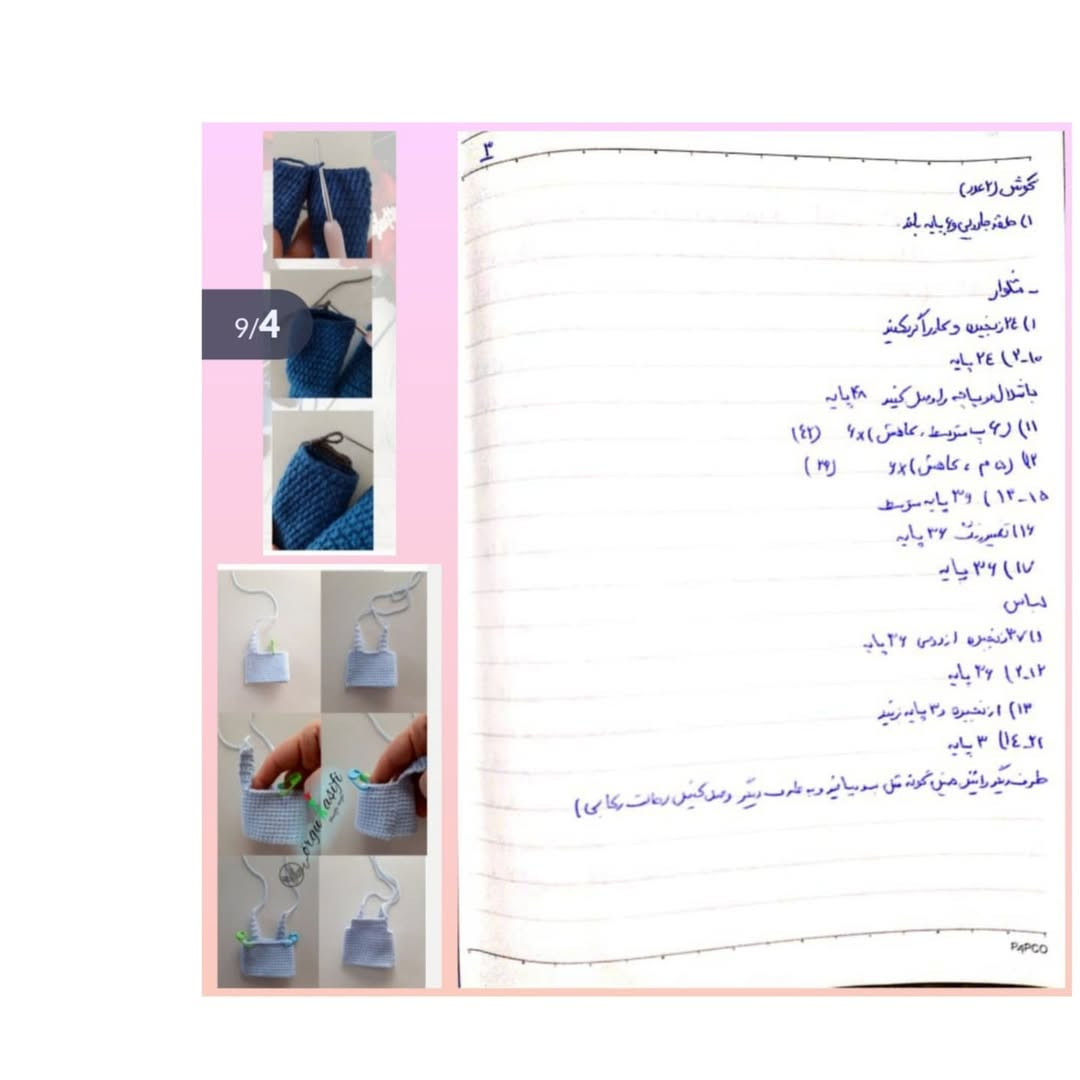 9/4
۳
گوش (۲عدد)
۱) حلقه جادویی و ۶ پایه بلند
- شلوار
۱) ۲٤ زنجیره و کار را گرد کنید
۲-۱۰) ۲٤ پایه
با شلال دو پاچه را وصل کنید ۴۸ پایه
۱۱) (۶ پ متوسط، کاهش)×۶ (٤۲)
۱۲) (۵ م، کاهش)×۶ (۳۶)
۱۳-۱۵) ۳۶ پایه متوسط
۱۶) تغییر رنگ ۳۶ پایه
۱۷) ۳۶ پایه
لباس
۱) ۳۷ زنجیره از دومی ۳۶ پایه
۲-۱۲) ۳۶ پایه
۱۳) ۱ زنجیره و ۳ پایه بزنید
۱٤-۲۲) ۳ پایه
طرف دیگر را نیز همین گونه مثل بند ببافید و به طرف دیگر وصل کنید (حالت رکابی)
orgu Kasifi
PAPCO